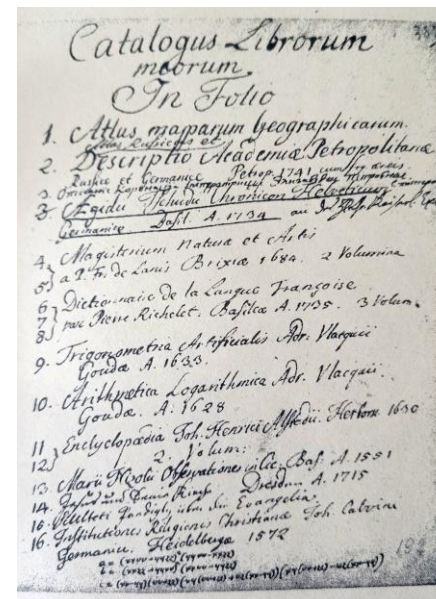 Catalogus Librorum
meorum
In Folio
1. Atlas mapparum Geographicarum.
2. Descriptio Academiæ Petropolitanæ
Russice et Germanice Petrop. 1741
3. Ægidii Tschudii Chronicon Helveticum
Germanice Basil. A. 1734
4 Magisterium Naturæ et Artis
5 a P. Fr. de Lanis Brixiæ 1684. 2 Volumina
6 Dictionnaire de la Langue Françoise
7 par Pierre Richelet. Basileæ A. 1735. 3 Volum.
8
9. Trigonometria Artificialis Adr. Vlacquii
Goudæ A. 1633
10. Arithmetica Logarithmica Adr. Vlacquii.
Goudæ. A. 1628
11 Encyclopædia Joh. Henrici Alstedii. Herborn 1630
12 2. Volum:
13. Marii Nizolii Observationes in Cic. Bas. A. 1551
14. Dresdn. A. 1715
16. Sculteti über die Evangelia.
16. Institutiones Religionis Christianæ Joh. Calvini
Germanice. Heidelbergæ 1572